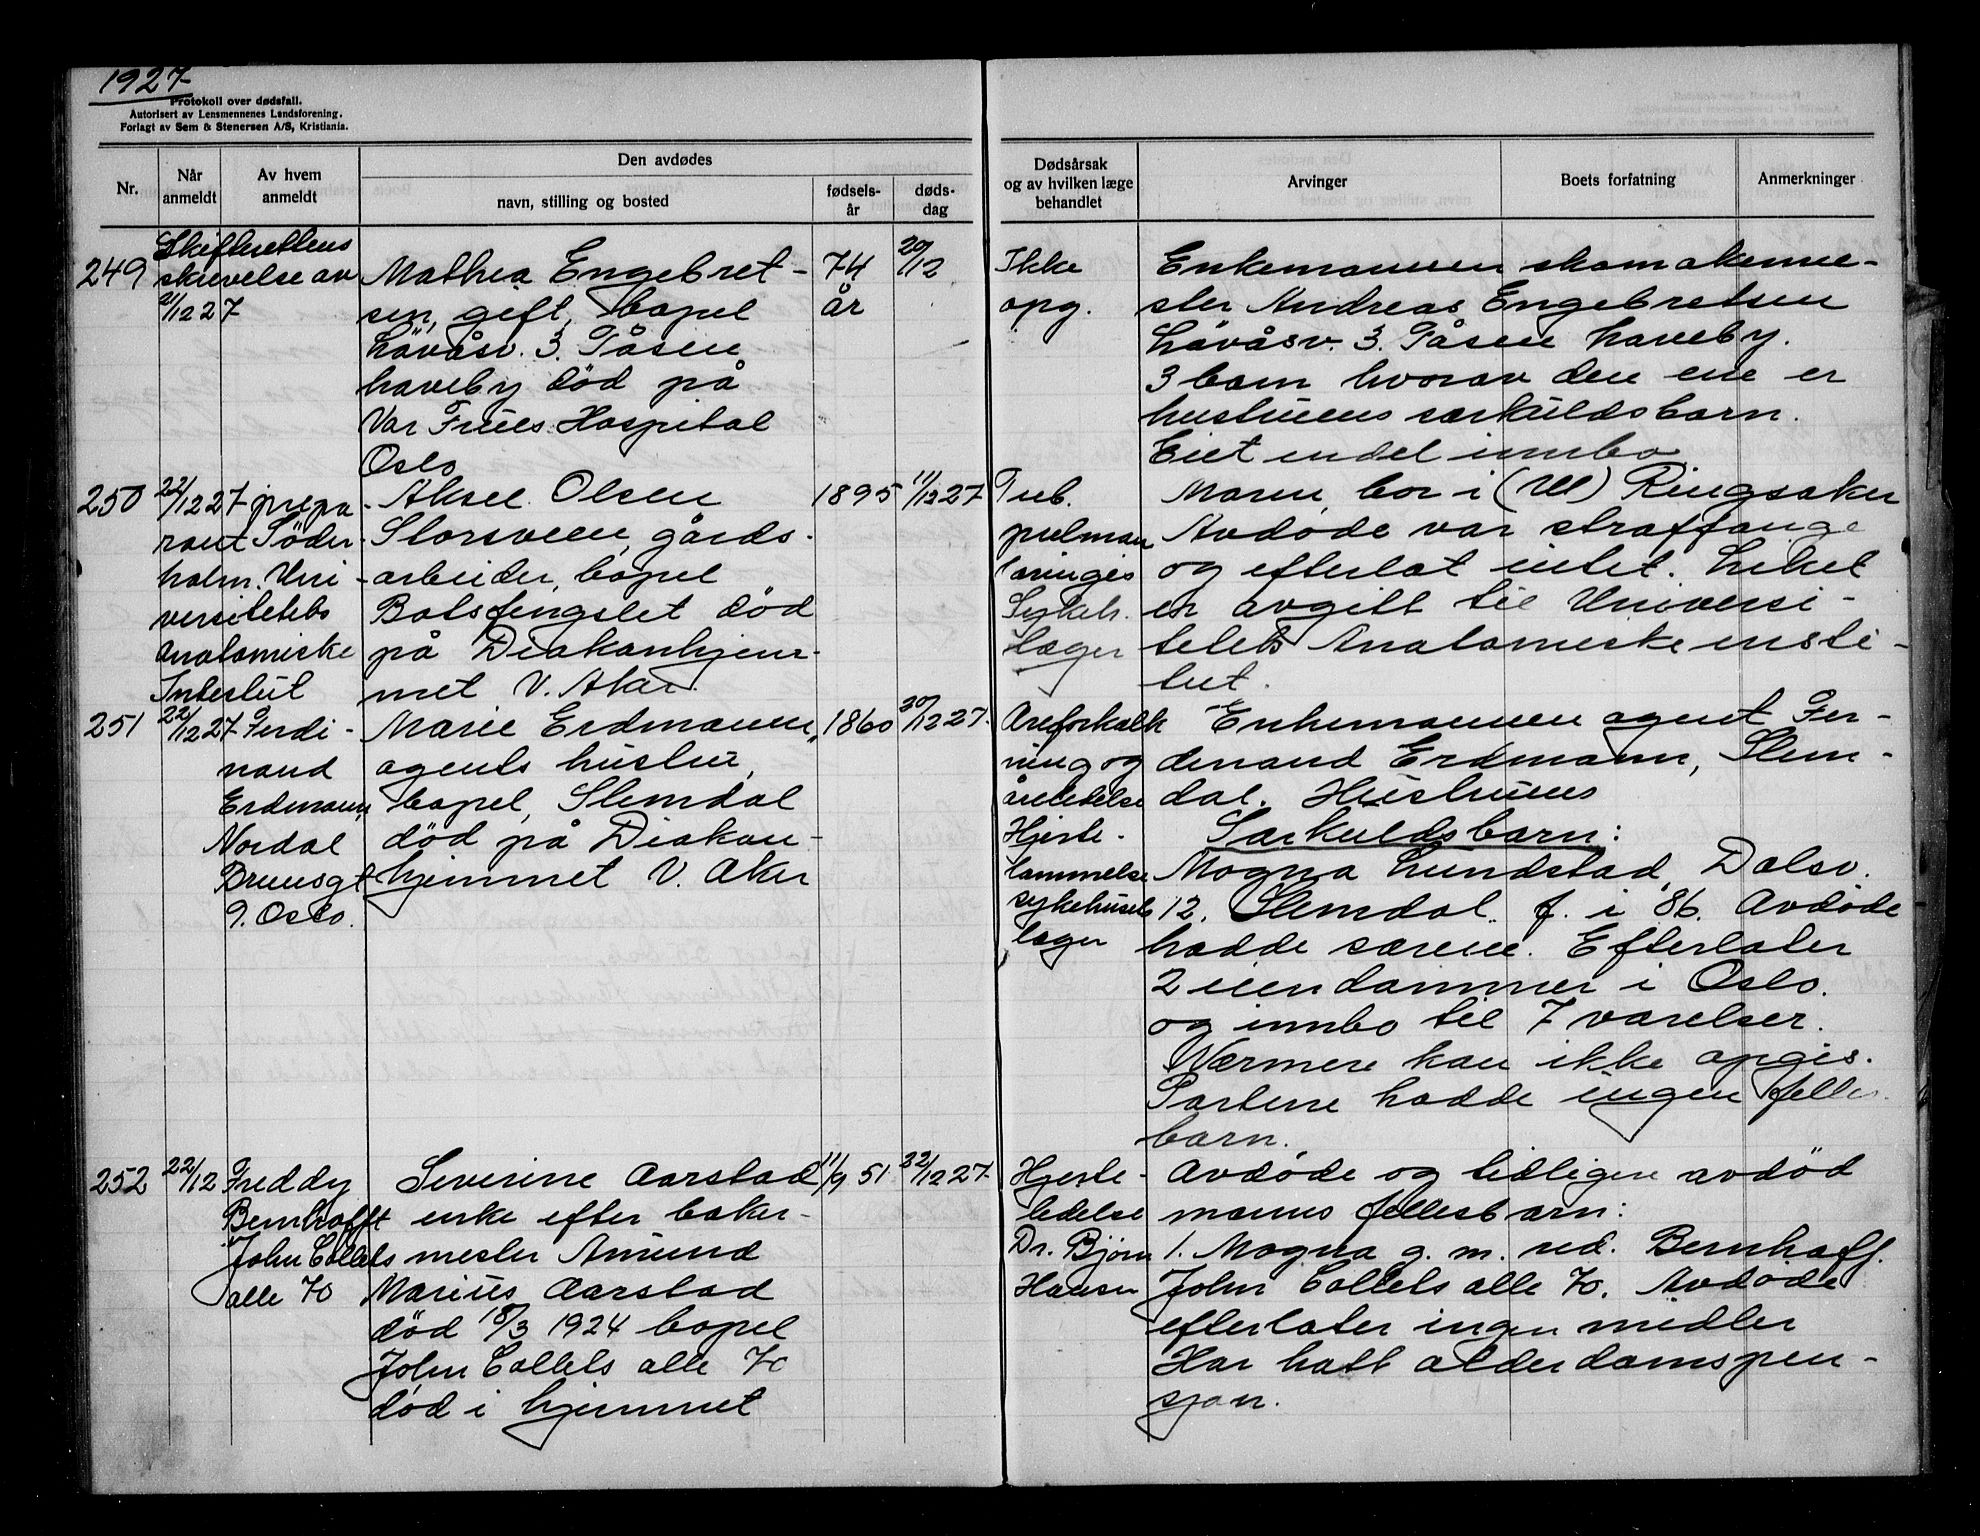 1927
Protokoll over dødsfall.
Autorisert av Lensmennenes Landsforening.
Forlagt av Sem & Stenersen A/S, Kristiania.
Nr.
Når
anmeldt
Av hvem
anmeldt
Den avdødes
navn, stilling og bosted
fødsels-
år
døds-
dag
Dødsårsak
og av hvilken læge
behandlet
Arvinger
Boets forfatning
Anmerkninger
249
Skifterettens
skrivelse av
21/12 27
Mathea Engebret-
sen, gift, bopel
Løvåsv. 3. Tåsen
haveby død på
Vor Frues Hospital
Oslo
74
år
20/12
Ikke
opg.
Enkemannen skomakerme-
ster Andreas Engebretsen
Løvåsv. 3. Tåsen haveby.
3 barn hvorav den ene er
hustruens særkuldsbarn.
Eiet endel innbo
250
22/12 27
prepa-
rant Söder-
holm. Uni-
versitetets
Anatomiske
Intestut
Aksel Olsen
Storsveen, gårds-
arbeider, bopel
Botsfengslet død
på Diakonhjem-
met V. Aker.
1895
11/12 27
Tub.
pulman
laringis
Sykeh.
læger
Moren, bor i (Ul) Ringsaker
Avdøde var straffange
og efterlot intet. Liket
er avgitt til Universi-
tetets Anatomiske insti-
tut.
251
22/12 27
Ferdi-
nand
Erdmann,
Nordal
Brunsgt
9. Oslo.
Marie Erdmann,
agents hustru,
bopel, Slemdal
død på Diakon-
hjemmet V. Aker
1860
20/12 27.
Areforkalk
ning og
åreledelse
Hjerte-
lammelse
sykehusets
læger
Enkemannen agent Fer-
dinand Erdmann, Slem-
dal. Hustruens
Særkuldsbarn:
Magna Lundstad, Dalsv.
12. Slemdal. f. i 86. Avdøde
hadde særeie. Efterlater
2 eiendommer i Oslo.
og innbo til 7 værelser.
Nærmere kan ikke opgis.
Partene hadde ingen felles
barn.
252
22/12
Freddy
Bernhofft
John Collets
alle 70
Severine Aarstad
enke efter baker-
mester Amund
Marius Aarstad
død 18/3 1924 bopel
John Collets alle 70
død i hjemmet
11/9 51
22/12 27.
Hjerte-
lidelse
Dr. Bjørn
Hansen
Avdøde og tidligere avdød
manns fellesbarn:
1. Magna g. m. red. Bernhoff.
John Collets alle 70. Avdøde
efterlater ingen midler
Har hatt alderdomspen-
sjon.